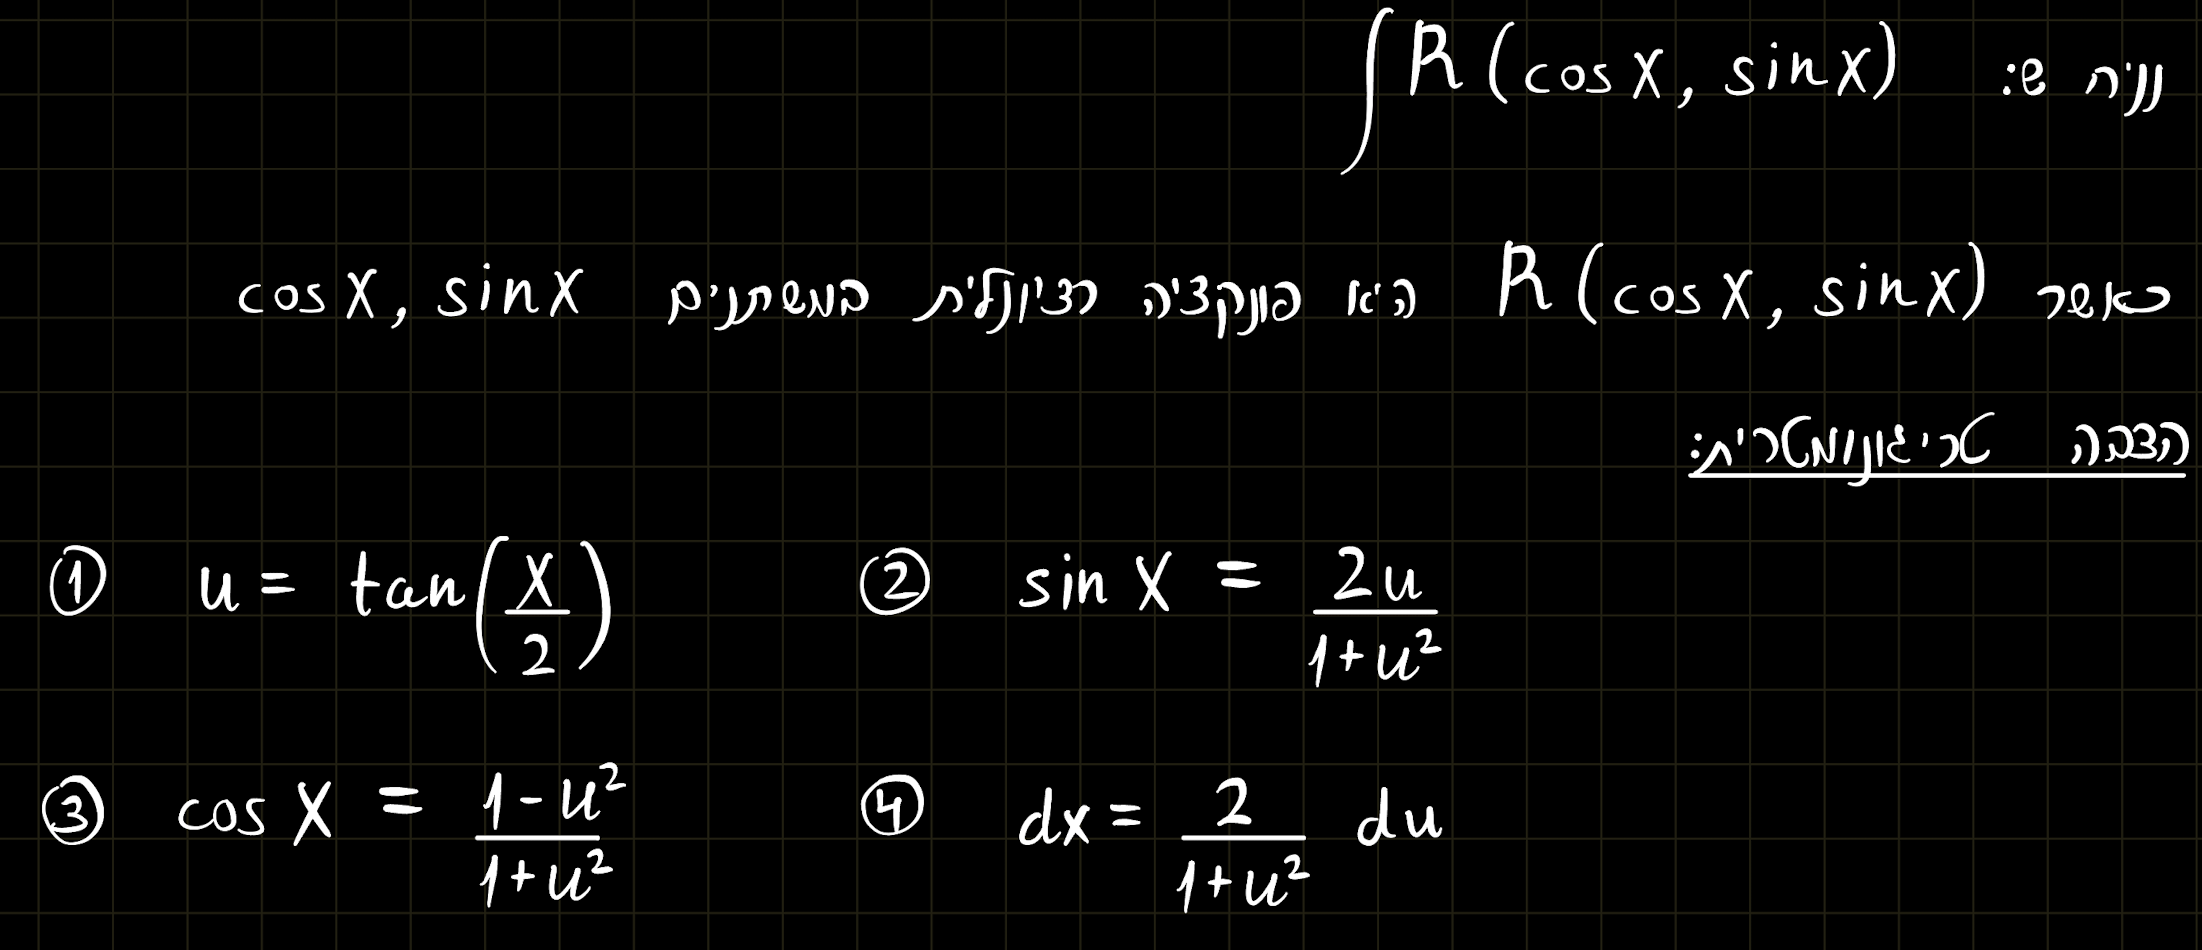 נניח ש: ∫R(cos x, sin x)
כאשר R(cos x, sin x) היא פונקציה רציונלית במשתנים cos x, sin x
הצבה טריגונומטרית:
① u = tan(x/2) ② sin x = 2u/(1+u²)
③ cos x = (1-u²)/(1+u²) ④ dx = 2/(1+u²) du